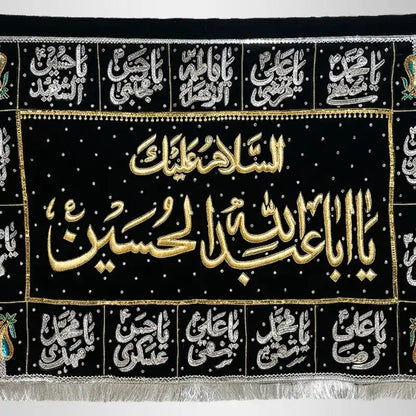 يا محمد
يا علي
يا فاطمة الزهراء
يا حسن مجتبى
يا حسين الشهيد
السلام عليك
يا ابا عبد الله الحسين ع
يا علي رضا
يا محمد تقي
يا علي نقي
يا حسن عسكري
يا محمد مهدي